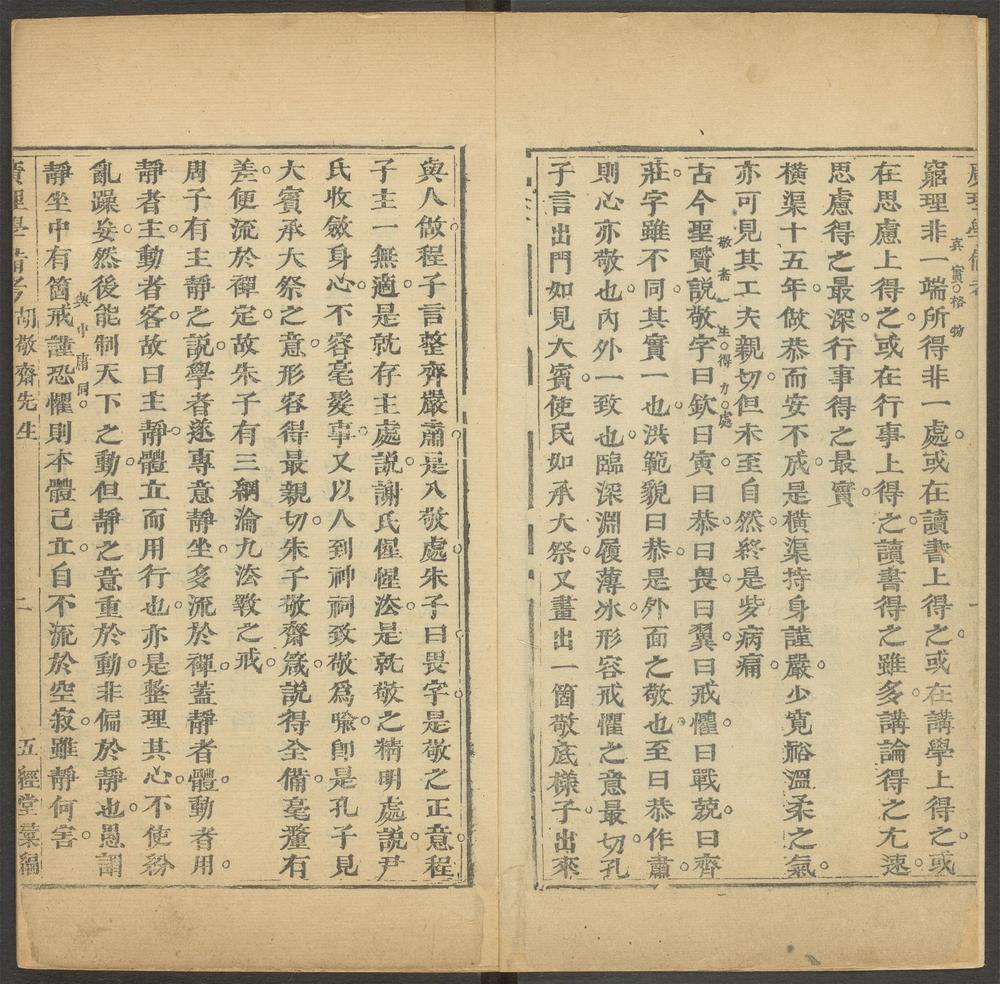 廣理學備考
窮理非一端所得非一處或在讀書上得之或在講學上得之或
真實格物
在思慮上得之或在行事上得之讀書得之雖多講論得之尤速
思慮得之最深行事得之最實
橫渠十五年做恭而安不成是橫渠持身謹嚴少寬裕溫柔之氣
亦可見其工夫親切但未至自然終是些病痛
敬齋一生得力處
古今聖賢說敬字曰欽曰寅曰恭曰畏曰翼曰戒懼曰戰兢曰齊
莊字雖不同其實一也洪範貌曰恭是外面之敬也至曰恭作肅
則心亦敬也內外一致也臨深淵履薄冰形容戒懼之意最切孔
子言出門如見大賓使民如承大祭又畫出一箇敬底樣子出來
與人做程子言整齊嚴肅是入敬處朱子曰畏字是敬之正意程
子主一無適是就存主處說謝氏惺惺法是就敬之精明處說尹
氏收斂身心不容毫髮事又以人到神祠致敬為喩卽是孔子見
大賓承大祭之意形容得最親切朱子敬齋箴說得全備毫釐有
差便流於禪定故朱子有三綱淪九法斁之戒
周子有主靜之說學者遂專意靜坐多流於禪蓋靜者體動者用
靜者主動者客故曰主靜體立而用行也亦是整理其心不使紛
亂躁妄然後能制天下之動但靜之意重於動非偏於靜也愚謂
與中庸同
靜坐中有箇戒謹恐懼則本體已立自不流於空寂雖靜何害
廣理學備考 胡敬齋先生 二 五經堂彙編